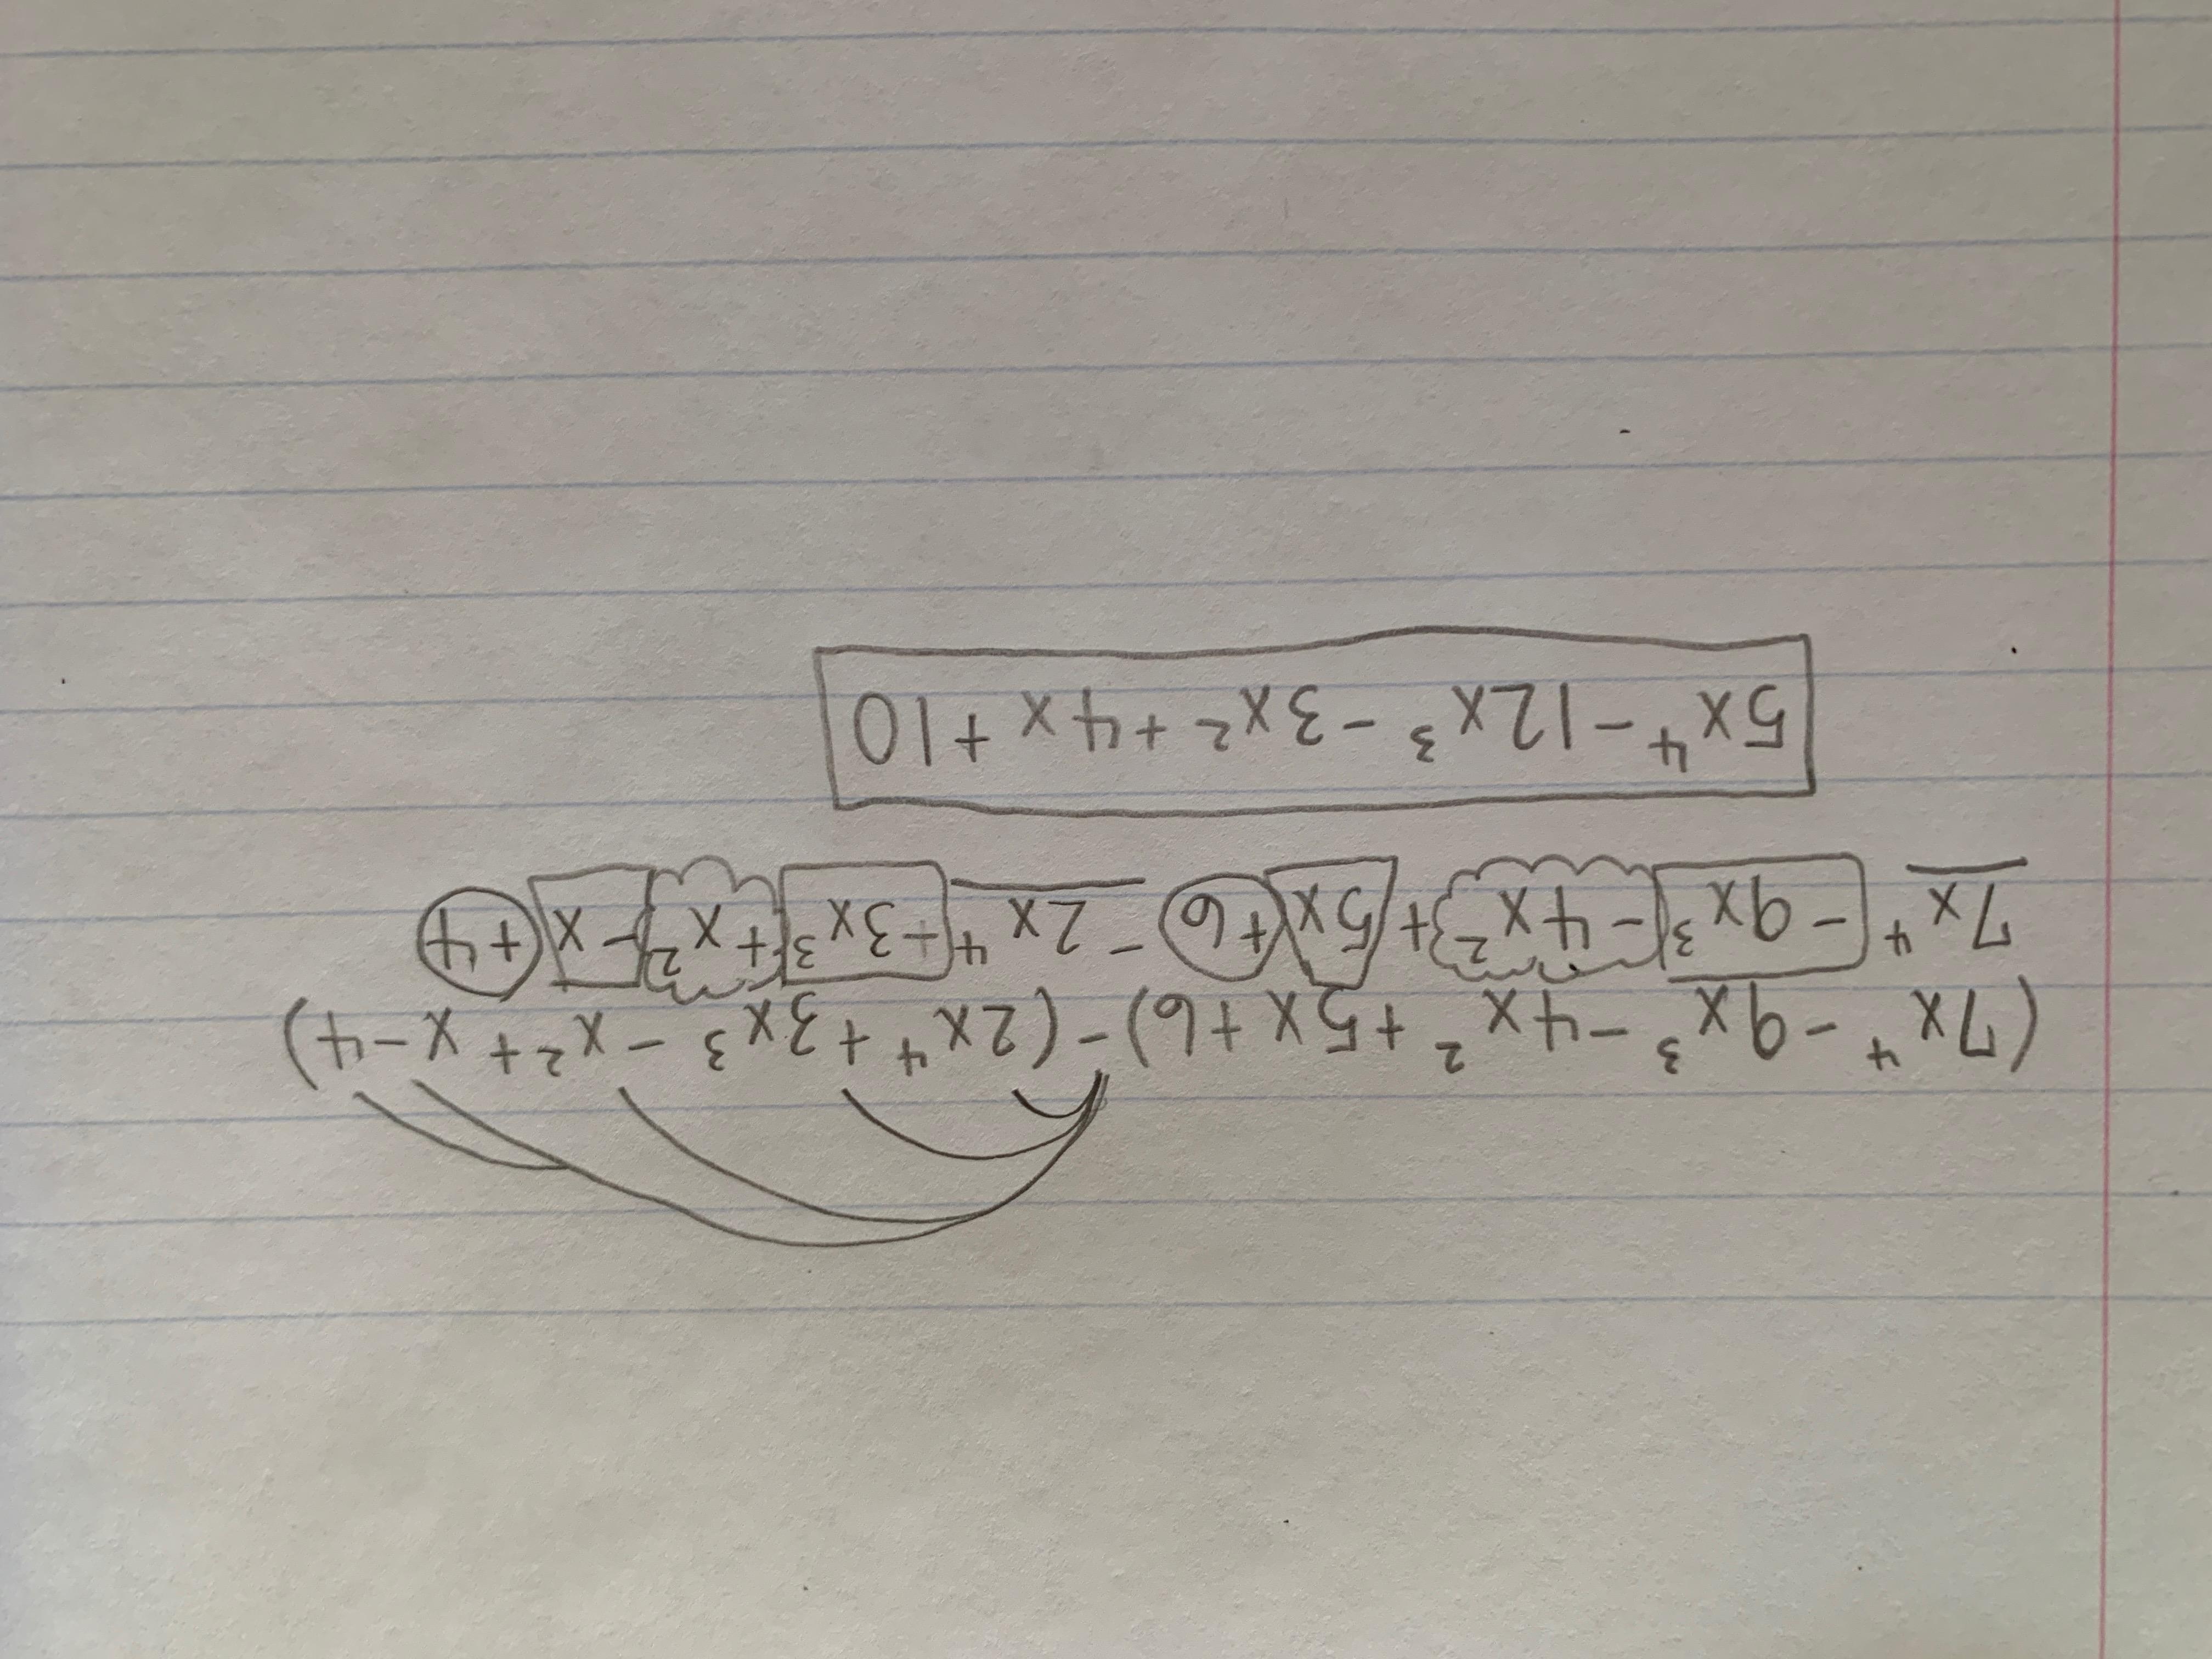 (7x⁴ - 9x³ - 4x² + 5x + 6) - (2x⁴ + 3x³ - x² + x - 4)
7x⁴ - 9x³ - 4x² + 5x + 6 - 2x⁴ - 3x³ + x² - x + 4
5x⁴ - 12x³ - 3x² + 4x + 10